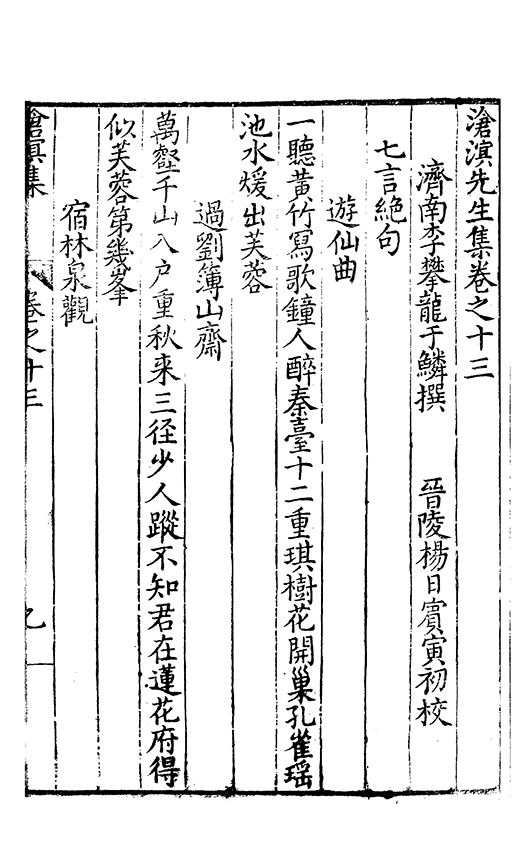 滄溟先生集卷之十三
濟南李攀龍于鱗撰　晉陵楊日賔寅初校
七言絶句
遊仙曲
一聽黃竹寫歌鐘人醉秦臺十二重琪樹花開巢孔雀瑶
池水煖出芙蓉
過劉簿山齋
萬壑千山入户重秋来三径少人蹤不知君在蓮花府得
似芙蓉第幾峯
宿林泉觀
滄溟集　卷之十三